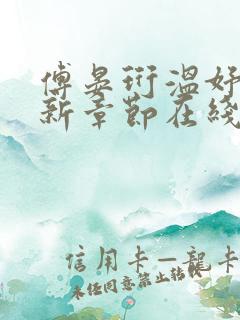 傅晏珩溫好
新章節在綫
信用卡—龍卡
未经同意禁止转载